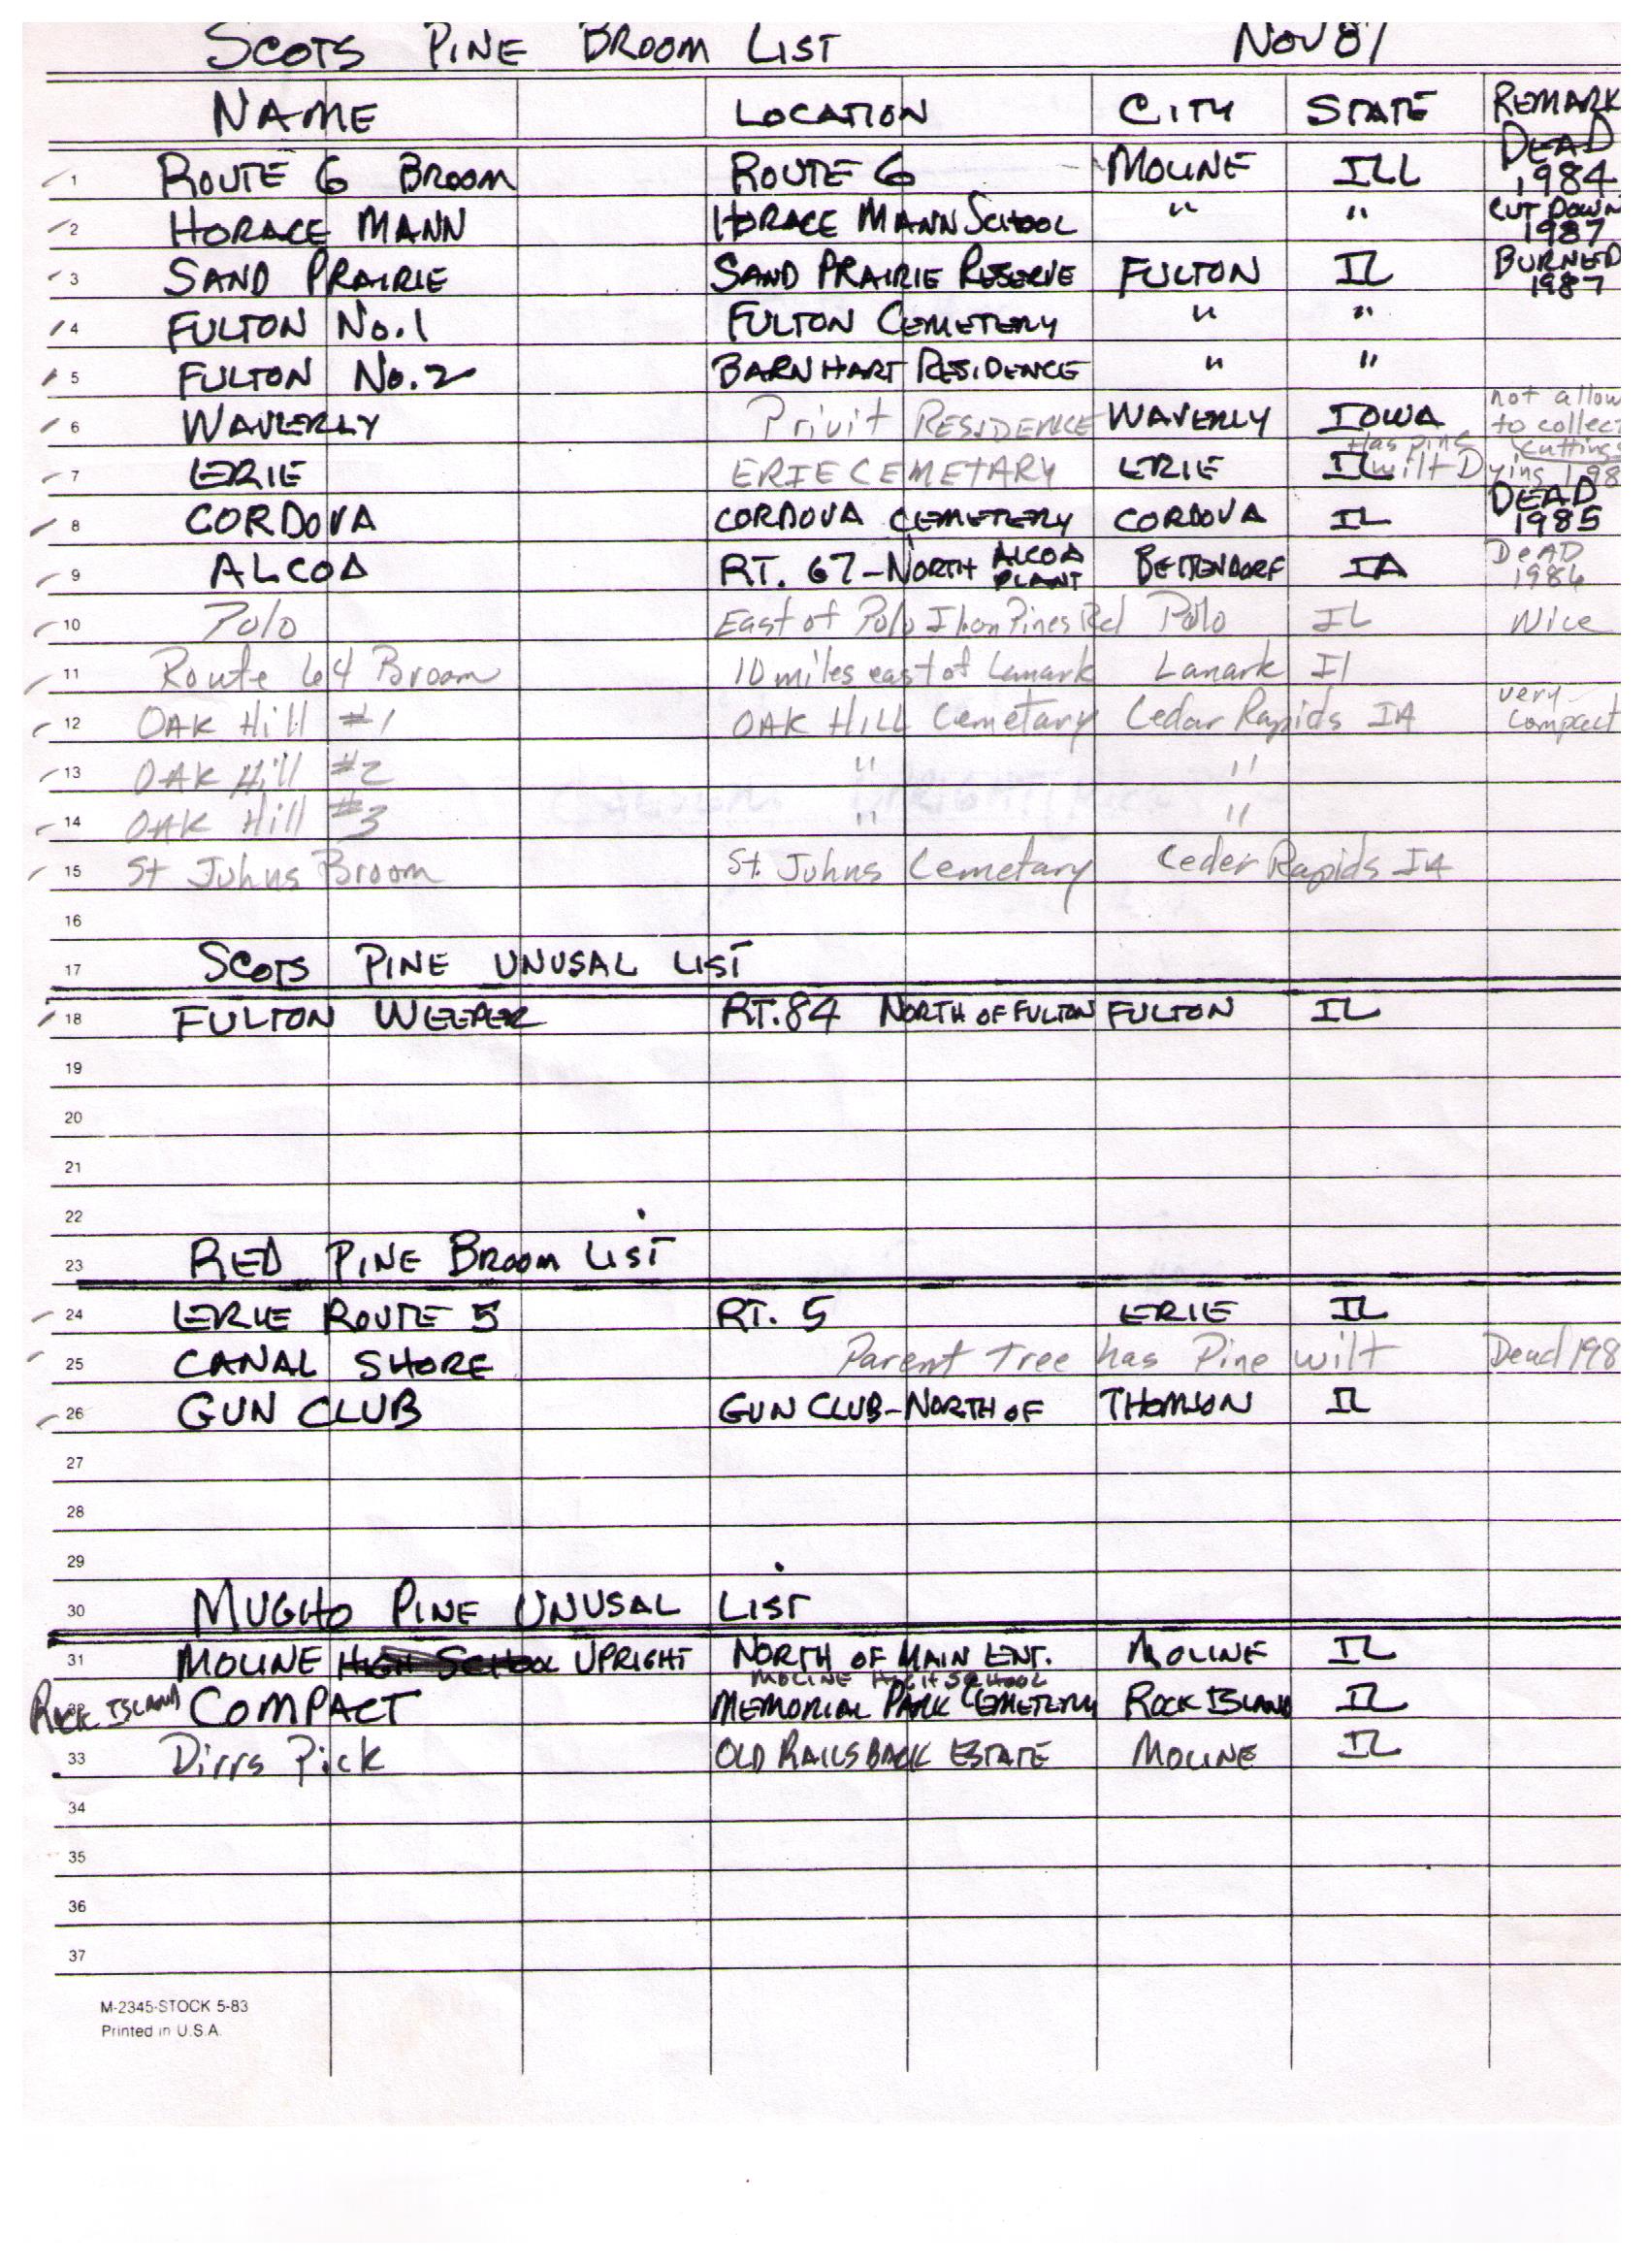 SCOTS PINE BROOM LIST NOV 81
NAME LOCATION CITY STATE REMARK
1 ROUTE 6 BROOM ROUTE 6 MOLINE ILL DEAD 1984
2 HORACE MANN HORACE MANN SCHOOL " " CUT DOWN 1987
3 SAND PRAIRIE SAND PRAIRIE RESERVE FULTON IL BURNED 1987
4 FULTON No. 1 FULTON CEMETERY " "
5 FULTON No. 2 BARNHART RESIDENCE " "
6 WAVERLY Privit RESIDENCE WAVERLY IOWA not allow to collect cuttings
7 ERIE ERIE CEMETARY ERIE IL Has pine wilt Dying 198
8 CORDOVA CORDOVA CEMETERY CORDOVA IL DEAD 1985
9 ALCOA RT. 67-NORTH ALCOA PLANT BETTENDORF IA DeAD 1986
10 Polo East of Polo Il on Pines Rd Polo IL Nice
11 Route 64 Broom 10 miles east of Lanark Lanark Il
12 OAK Hill #1 OAK HILL Cemetary Cedar Rapids IA very compact
13 OAK Hill #2 " "
14 OAK Hill #3 " "
15 St Johns Broom St. Johns Cemetary Ceder Rapids IA
16
17 SCOTS PINE UNUSAL LIST
18 FULTON WEEPER RT. 84 NORTH OF FULTON FULTON IL
19
20
21
22
23 RED PINE BROOM LIST
24 ERIE ROUTE 5 RT. 5 ERIE IL
25 CANAL SHORE Parent Tree has Pine wilt Dead 198
26 GUN CLUB GUN CLUB-NORTH OF THOMSON IL
27
28
29
30 MUGHO PINE UNUSAL LIST
31 MOLINE HIGH SCHOOL UPRIGHT NORTH OF MAIN ENT. MOLINE IL
MOLINE HIGH SCHOOL
ROCK ISLAND COMPACT MEMORIAL PARK CEMETERY ROCK ISLAND IL
33 Dirrs Pick OLD RAILSBACK ESTATE MOLINE IL
34
35
36
37
M-2345-STOCK 5-83
Printed in U.S.A.